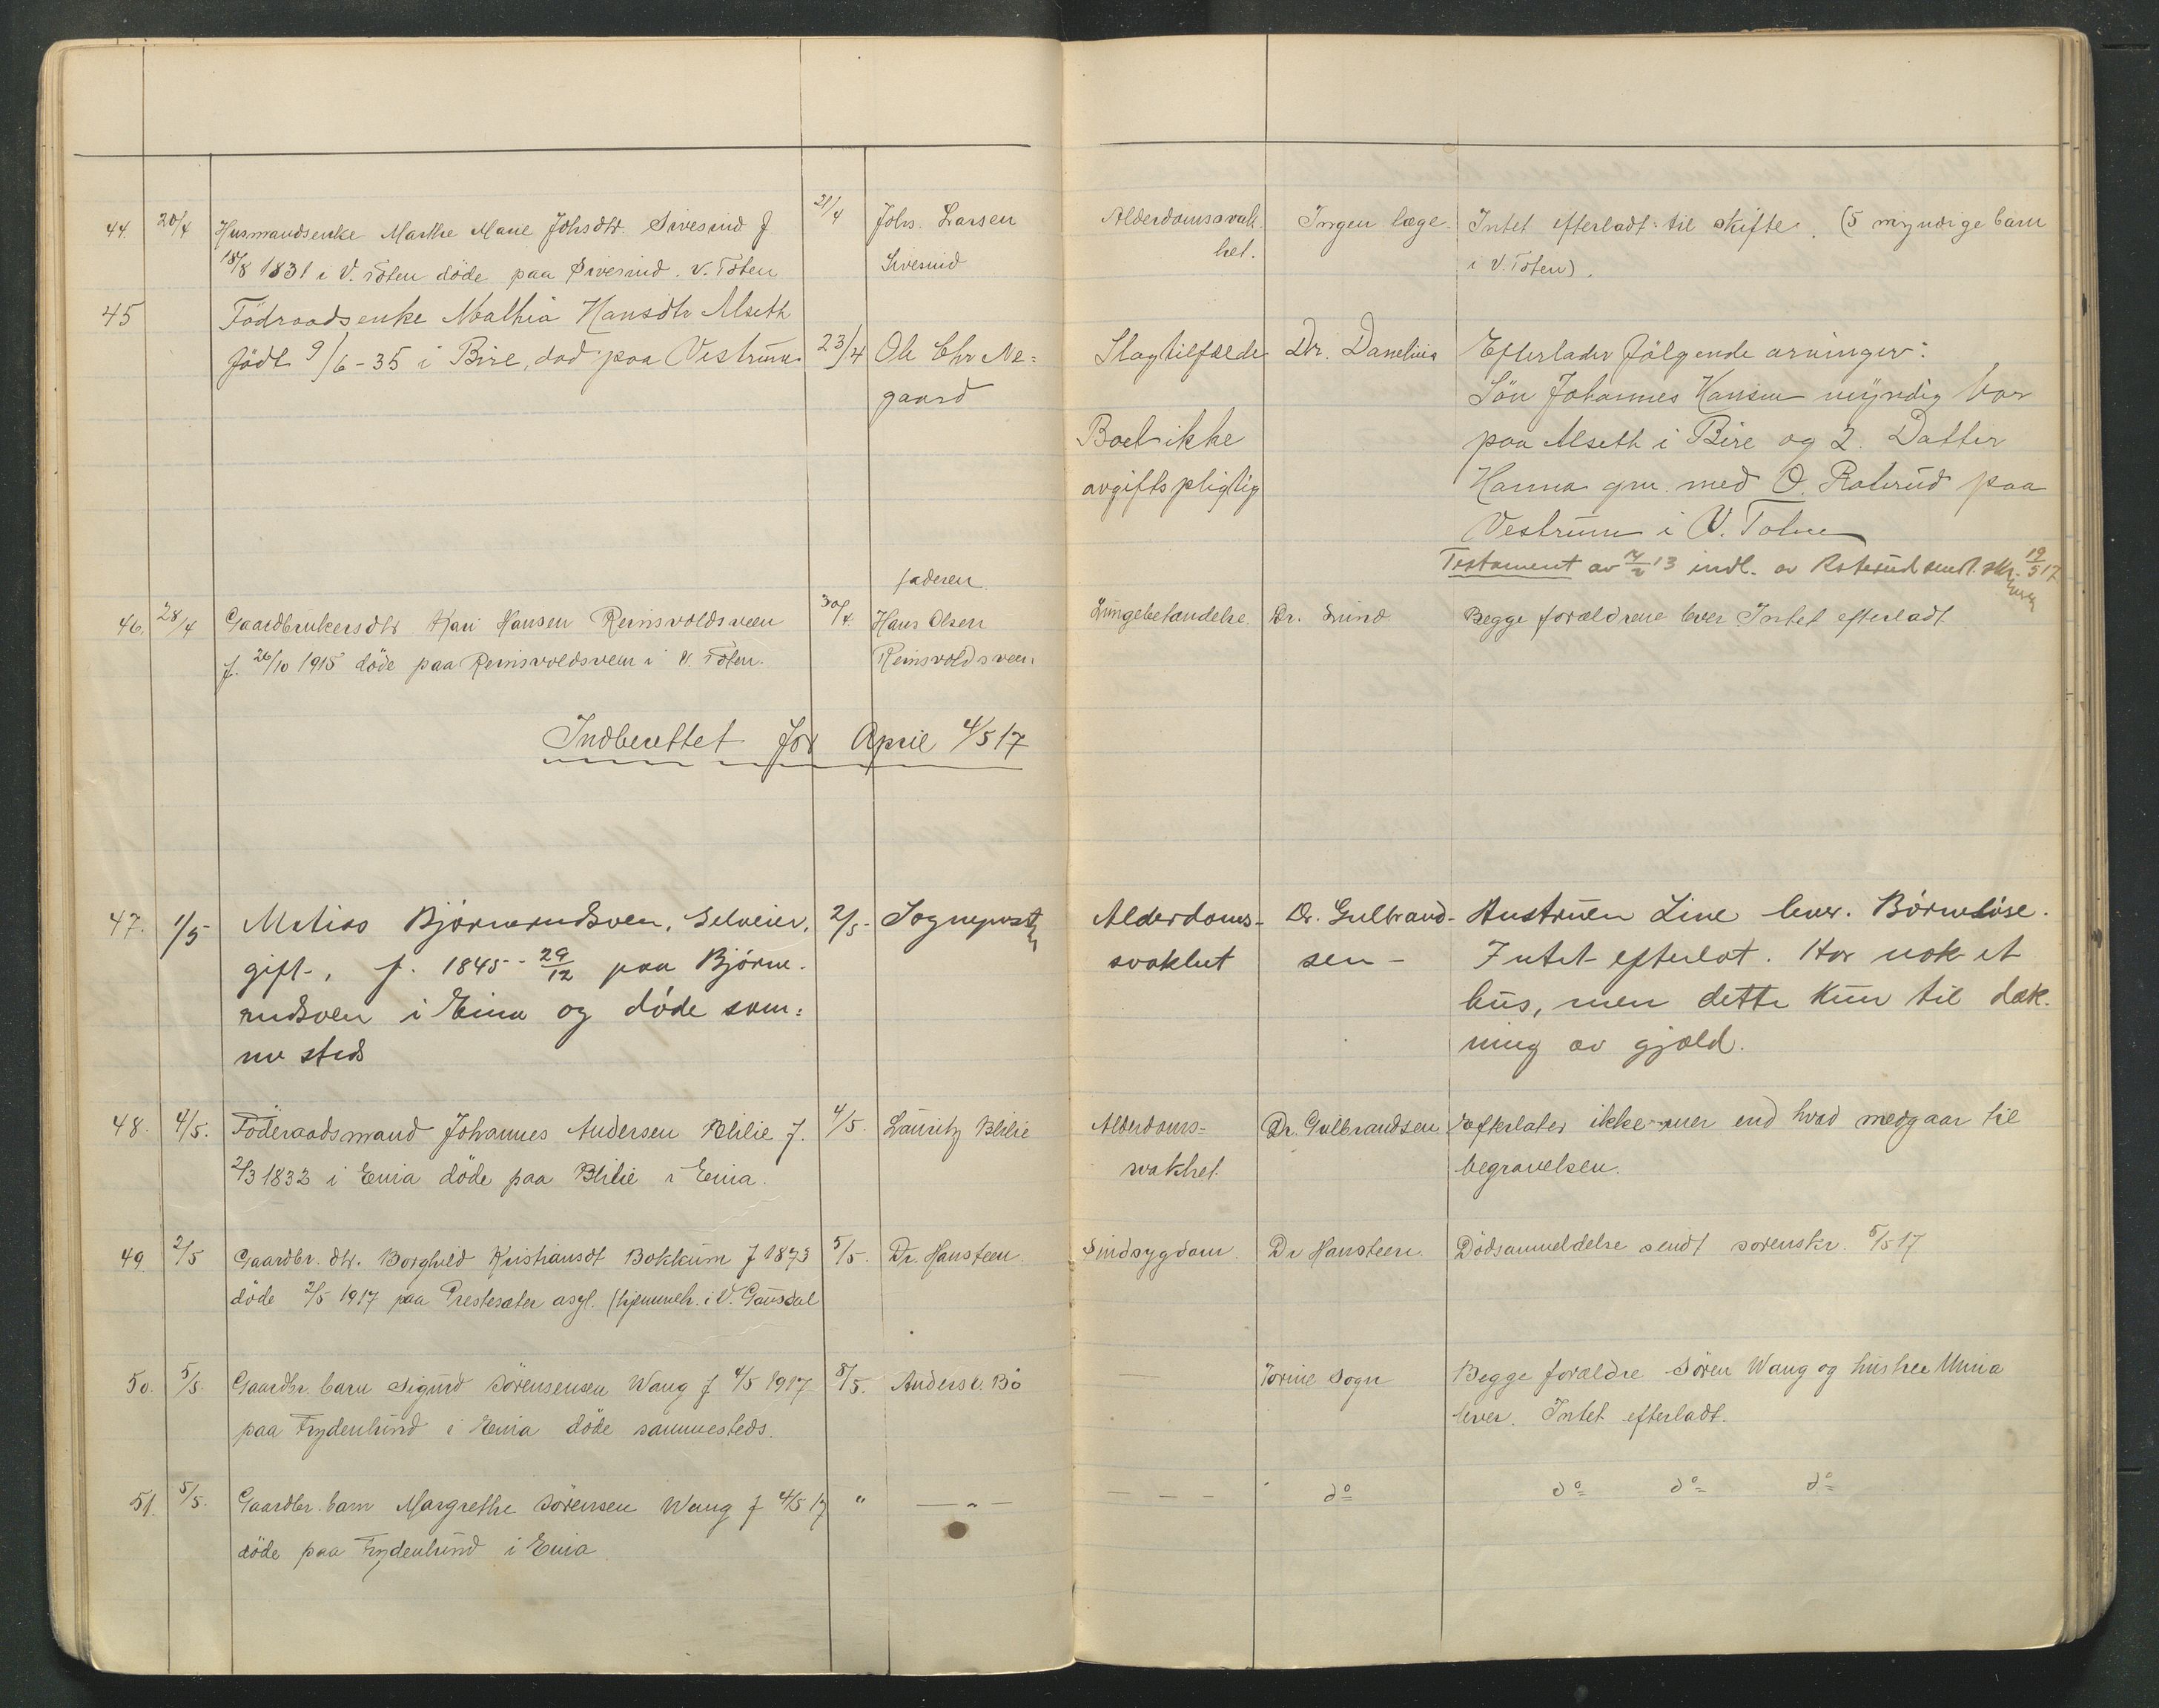 44. 20/4 Husmandsenke Marthe Marie Johsdtr. Sivesind f. 21/4 Johs. Larsen Alderdomssvak Ingen læge. Intet efterladt til skifte. (5 myndige barn
18/8 1831 i V. Toten döde paa Sivesind. V. Toten Sivesind het. i V. Toten).
45 Födraadsenke Mathia Hansdtr Alseth
födt 9/6-35 i Bire, död paa Vestrum 23/4 Ole Chr Ne= Slagtilfælde Dr. Danelius Efterlader fölgende arvinger:
gaard Sön Johannes Hansen myndig bor
Boet ikke paa Alseth i Bire og 2. Datter
avgiftspligtig Hanna gm. med O. Roterud paa
Vestrum i V. Toten
Testament av 13 indl. av Roterud sendt skr. 19/5 17
faderen.
46. 28/4 Gaardbrukersdtr Kari Hansen Reinsvoldsveen 30/4 Hans Olsen Lungebetændelse. Dr. Lund Begge forældrene lever Intet efterladt
f. 26/10 1915 döde paa Reinsvoldsveen i V. Toten. Reinsvoldsveen.
Indberettet for April 4/5 17
47. 1/5 Matias Bjørnerudsveen, Selveier, 2/5- Sogneprest Alderdoms- Dr. Gulbrand- Hustruen Line lever. Børneløse.
gift, f. 1845- 29/12 paa Bjørne- svakhet sen- Intet efterlat. Har nok et
rudsveen i Eina og døde sam= hus, men dette kun til dæk-
me sted ning av gjæld.
48. 4/5. Föderaadsmand Johannes Andersen Blilie f. 4/5. Lauritz Blilie Alderdoms= Dr. Gulbrandsen Efterlater ikke mer end hvad medgaar til
2/3 1832 i Eina döde paa Blilie i Eina. svakhet. begravelsen.
49. 2/5 Gaardbr. dtr. Borghild Kristiansdt Bokkum f 1873 5/5. Dr. Hansteen. Sindsygdom. Dr Hansteen. Dödsanmeldelse sendt sorenskr. 5/5 17
döde 2/5 1917 paa Prestesæter asyl. (hjemmeh. i V. Gausdal
50. 5/5. Gaardbr. barn Sigurd Sörensensen Wang f 4/5 1917 8/5. Anders Bö — Begge forældre Sören Wang og hustru
paa Frydenlund i Eina döde sammesteds. lever. Intet efterladt.
51. 5/5. Gaardbr. barn Margrethe Sörensen Wang f 4/5 17 " — „ — — — — do do do do
döde paa Frydenlund i Eina.